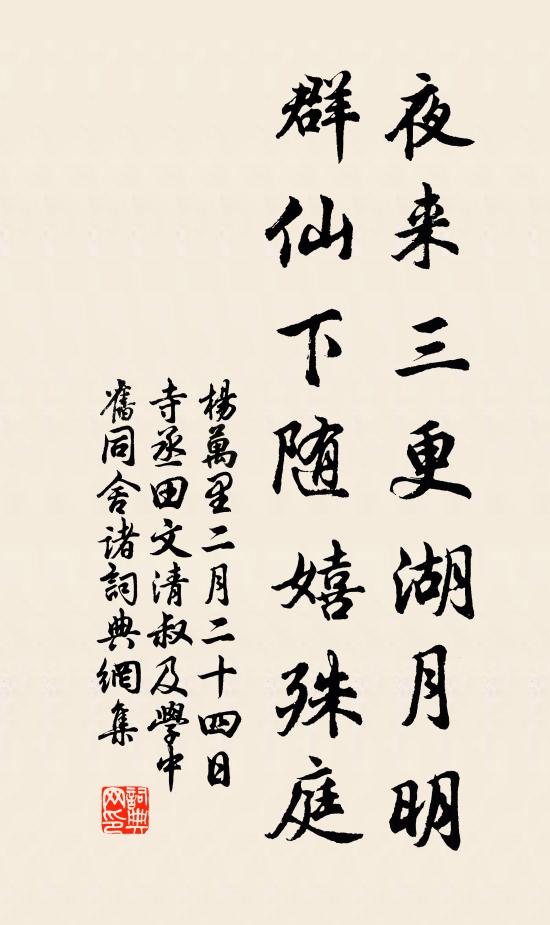 夜来三更湖月明
群仙下随嬉殊庭
楊萬里二月二十四日
寺丞田文清叔及學中
舊同舍諸詞典網集
詞典网印